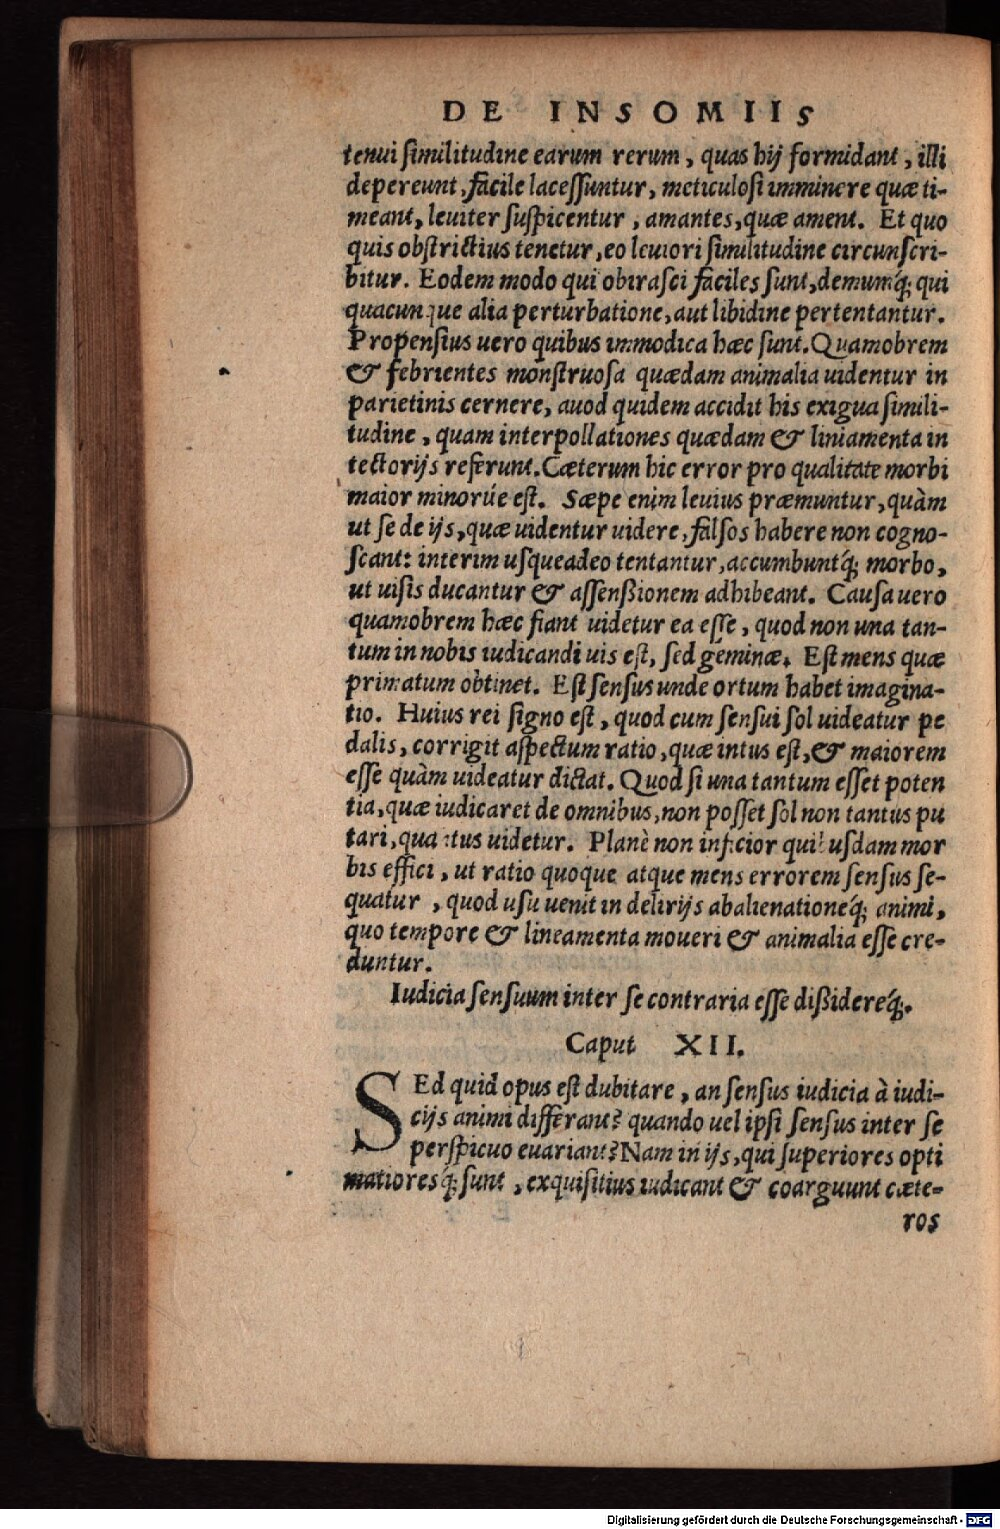 DE INSOMIIS
tenui similitudine earum rerum, quas hij formidant, illi
depereunt, facile lacessuntur, meticulosi imminere quæ ti-
meant, leuiter suspicentur, amantes, quæ ament. Et quo
quis obstrictius tenetur, eo leuiori similitudine circunscri-
bitur. Eodem modo qui obirasci faciles sunt, demumq́; qui
quacunque alia perturbatione, aut libidine pertentantur.
Propensius uero quibus immodica hæc sunt. Quamobrem
& febrientes monstruosa quædam animalia uidentur in
parietinis cernere, auod quidem accidit his exigua simili-
tudine, quam interpollationes quædam & liniamenta in
tectorijs referunt. Cæterum hic error pro qualitate morbi
maior minorúe est. Sæpe enim leuius præmuntur, quàm
ut se de ijs, quæ uidentur uidere, falsos habere non cogno-
scant: interim usqueadeo tentantur, accumbuntq́; morbo,
ut uisis ducantur & assenßionem adhibeant. Causa uero
quamobrem hæc fiant uidetur ea esse, quod non una tan-
tum in nobis iudicandi uis est, sed geminæ. Est mens quæ
primatum obtinet. Est sensus unde ortum habet imagina-
tio. Huius rei signo est, quod cum sensui sol uideatur pe
dalis, corrigit aspectum ratio, quæ intus est, & maiorem
esse quàm uideatur dictat. Quod si una tantum esset poten
tia, quæ iudicaret de omnibus, non posset sol non tantus pu
tari, quantus uidetur. Planè non inficior quibusdam mor
bis effici, ut ratio quoque atque mens errorem sensus se-
quatur, quod usu uenit in delirijs abalienationeq́; animi,
quo tempore & lineamenta moueri & animalia esse cre-
duntur.
Iudicia sensuum inter se contraria esse dißidereq́;.
Caput XII.
SEd quid opus est dubitare, an sensus iudicia à iudi-
cijs animi differant? quando uel ipsi sensus inter se
perspicuo euariant? Nam in ijs, qui superiores opti
matioresq́; sunt, exquisitius iudicant & coarguunt cæte-
ros
Digitalisierung gefördert durch die Deutsche Forschungsgemeinschaft - DFG